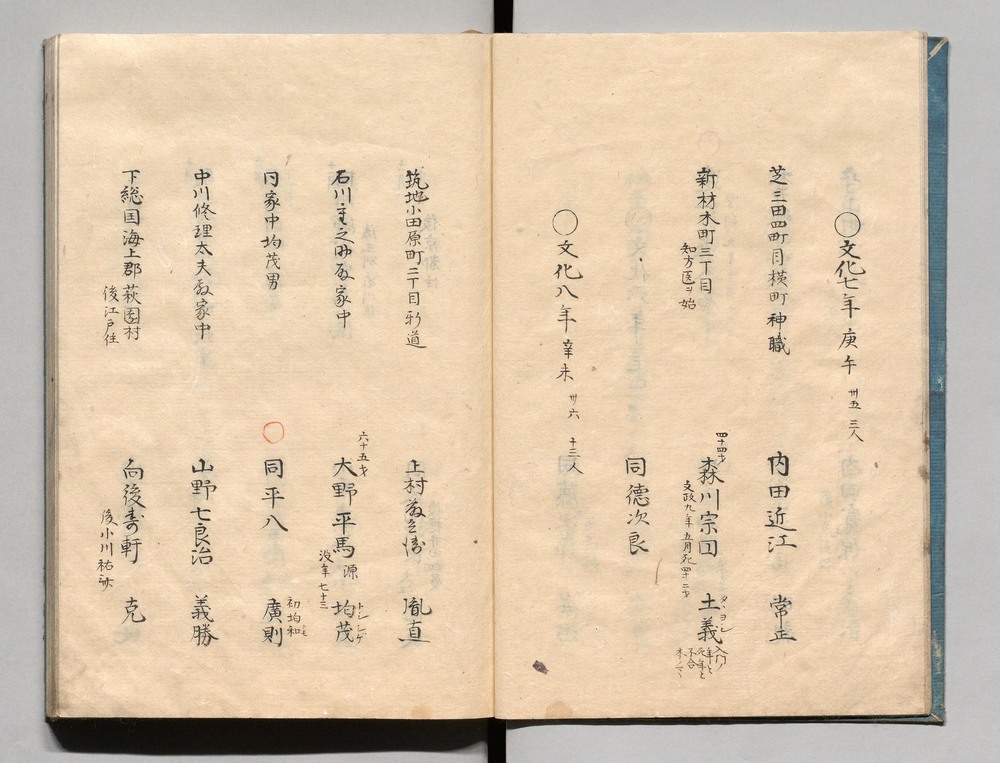 〇文化七年 庚午 卅五 三人
芝三田四町目横町神職 内田近江 常正
新材木町三丁目 四十四才 森川宗 士義
知方医ヲ始
文政九年五月死 四十二才
入門ノ
年と
死年と
不合
本ノマヽ
同 徳次良
〇文化八年 辛未 卅六 十三人
筑地小田原町二丁目新道 上村 胤直
石川主之助殿家中 六十五才 大野平馬 源 均茂
トシシゲ
没年七十三
同家中均茂男 〇同 平八 廣則
初均和
中川修理太夫殿家中 山野七良治 義勝
下総国海上郡萩園村 向後寿軒 克
後江戸住
後小川祐